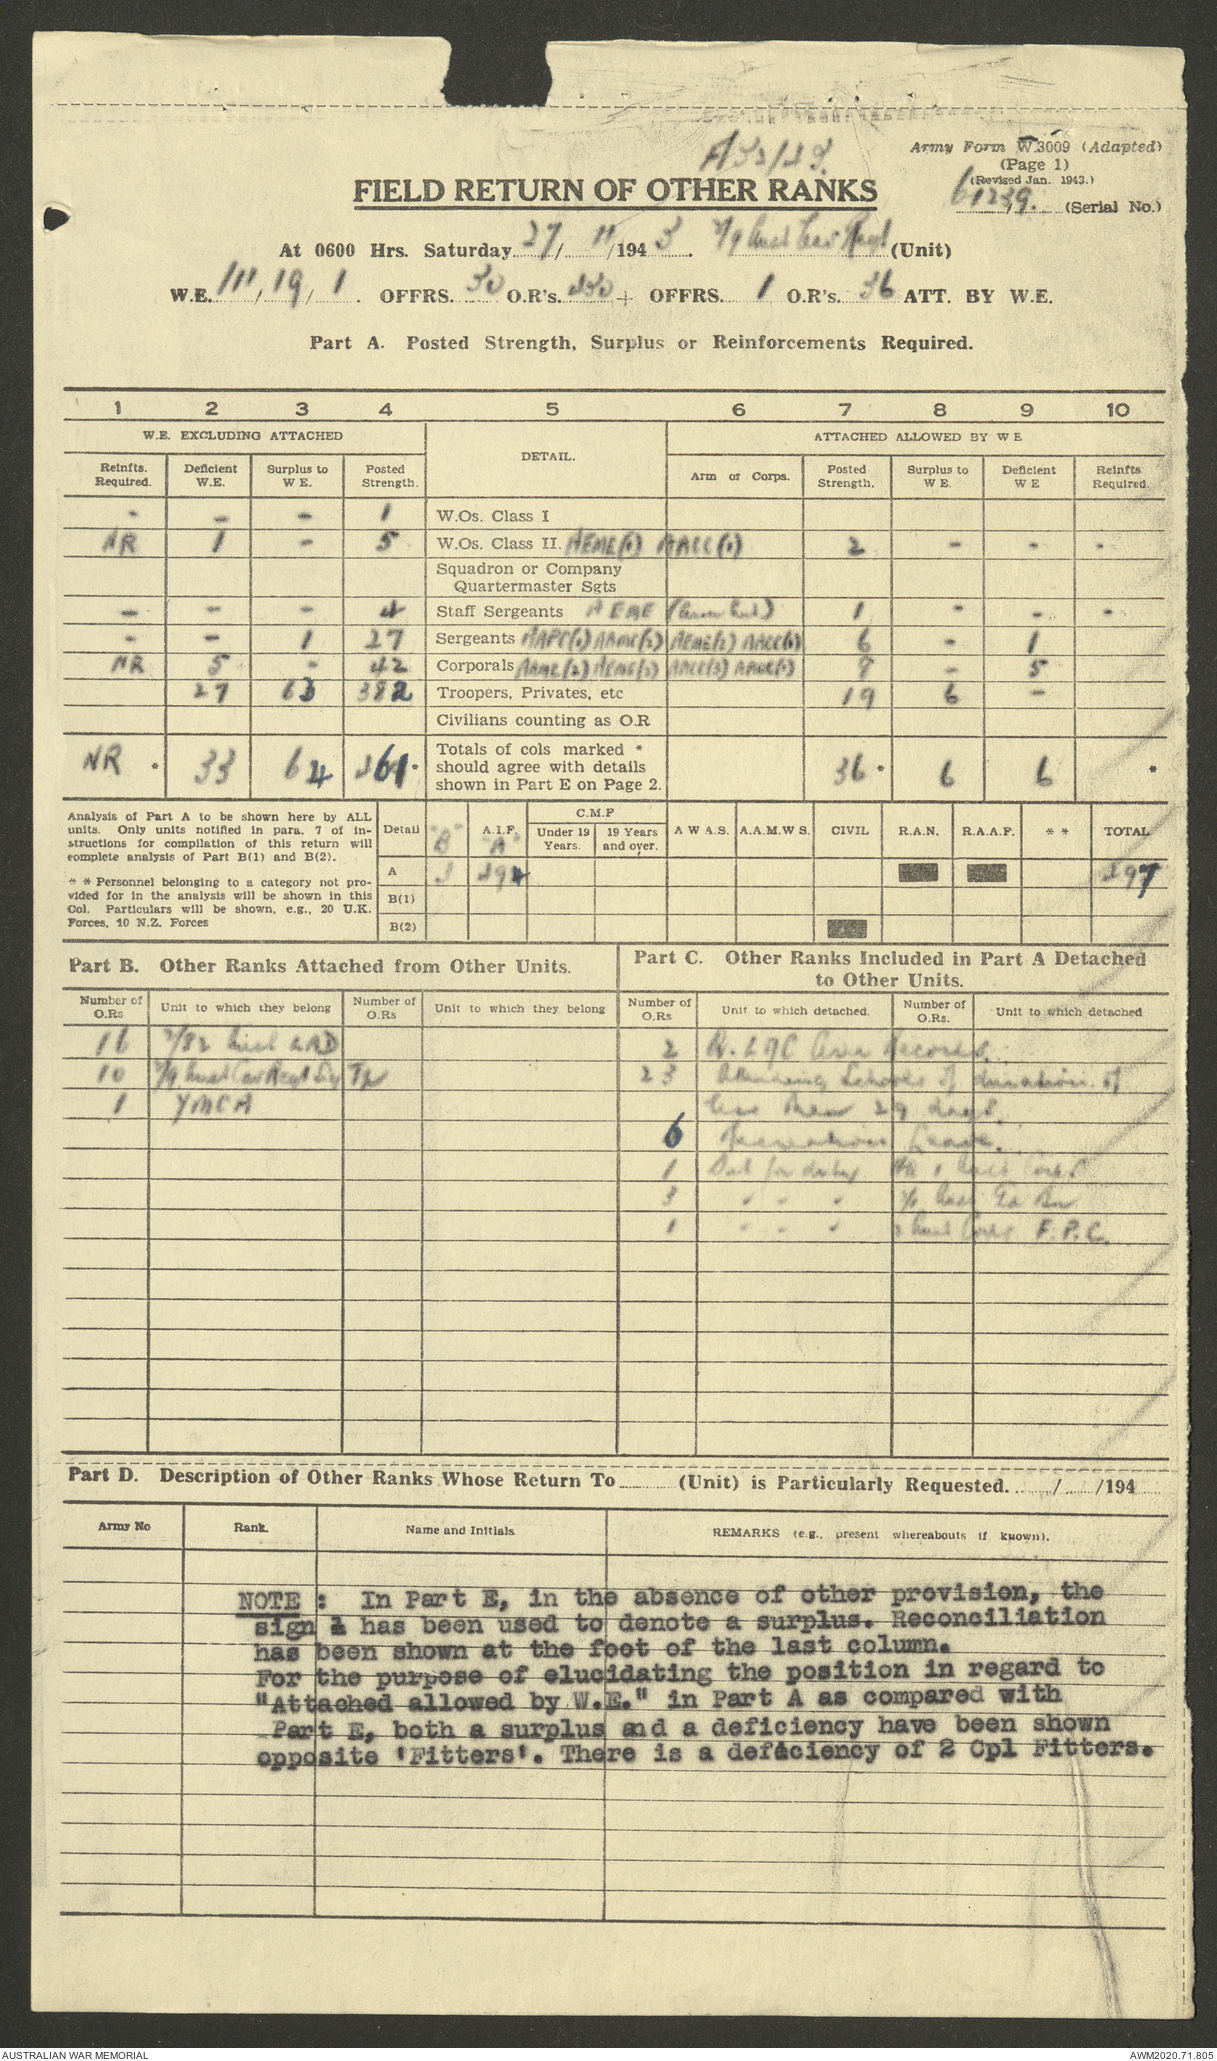 Army Form W.3009 (Adapted)
(Page 1)
(Revised Jan. 1943.)
(Serial No.)
FIELD RETURN OF OTHER RANKS
At 0600 Hrs. Saturday 27/ 11 /194 3. 2/9 Aust Cav Regt (Unit)
W.E. III, 19, 1. OFFRS. 30 O.R's. 430 + OFFRS. 1 O.R's. 36 ATT. BY W.E.
Part A. Posted Strength, Surplus or Reinforcements Required.
1 2 3 4 5 6 7 8 9 10
W.E. EXCLUDING ATTACHED DETAIL. ATTACHED ALLOWED BY W E
Reinfts. Required. Deficient W.E. Surplus to W E. Posted Strength. Arm or Corps. Posted Strength. Surplus to W E. Deficient W E Reinfts Required.
- - - 1 W.Os. Class I
NR 1 - 5 W.Os. Class II. AEME(1) AACC(1) 2 - - -
Squadron or Company
Quartermaster Sgts
- - - 4 Staff Sergeants AEME 1 - - -
- - 1 27 Sergeants 6 - 1
NR 5 - 42 Corporals 8 - 5
27 63 382 Troopers, Privates, etc 19 6 -
Civilians counting as O.R
NR * 33 64 461 * Totals of cols marked *
should agree with details
shown in Part E on Page 2. 36 * 6 6 *
Analysis of Part A to be shown here by ALL
units. Only units notified in para. 7 of in-
structions for compilation of this return will
complete analysis of Part B(1) and B(2).
* * Personnel belonging to a category not pro-
vided for in the analysis will be shown in this
Col. Particulars will be shown, e.g., 20 U.K.
Forces, 10 N.Z. Forces
Detail "B" A.I.F. "A" C.M.F Under 19 Years. 19 Years and over. A W A S. A.A.M.W S. CIVIL R.A.N. R.A.A.F. * * TOTAL
A 3 494 497
B(1)
B(2)
Part B. Other Ranks Attached from Other Units.
Number of O.Rs Unit to which they belong Number of O.Rs Unit to which they belong
16 2/82 Aust LAD
10 2/9 Aust Cav Regt Sig Tp
1 YMCA
Part C. Other Ranks Included in Part A Detached
to Other Units.
Number of O.Rs Unit to which detached. Number of O.Rs. Unit to which detached
2 Q. L of C Area Records.
23 Attending Schools of duration of
less than 29 days.
6 Recreation Leave.
1 Det for duty HQ 1 Aust Corps
3 " " "
1 " " " Aust Corps F.P.C.
Part D. Description of Other Ranks Whose Return To (Unit) is Particularly Requested. / /194
Army No Rank. Name and Initials. REMARKS (e.g., present whereabouts if known).
NOTE : In Part E, in the absence of other provision, the
sign has been used to denote a surplus. Reconciliation
has been shown at the foot of the last column.
For the purpose of elucidating the position in regard to
"Attached allowed by W.E." in Part A as compared with
Part E, both a surplus and a deficiency have been shown
opposite 'Fitters'. There is a deficiency of 2 Cpl Fitters.
AUSTRALIAN WAR MEMORIAL
AWM2020.71.805